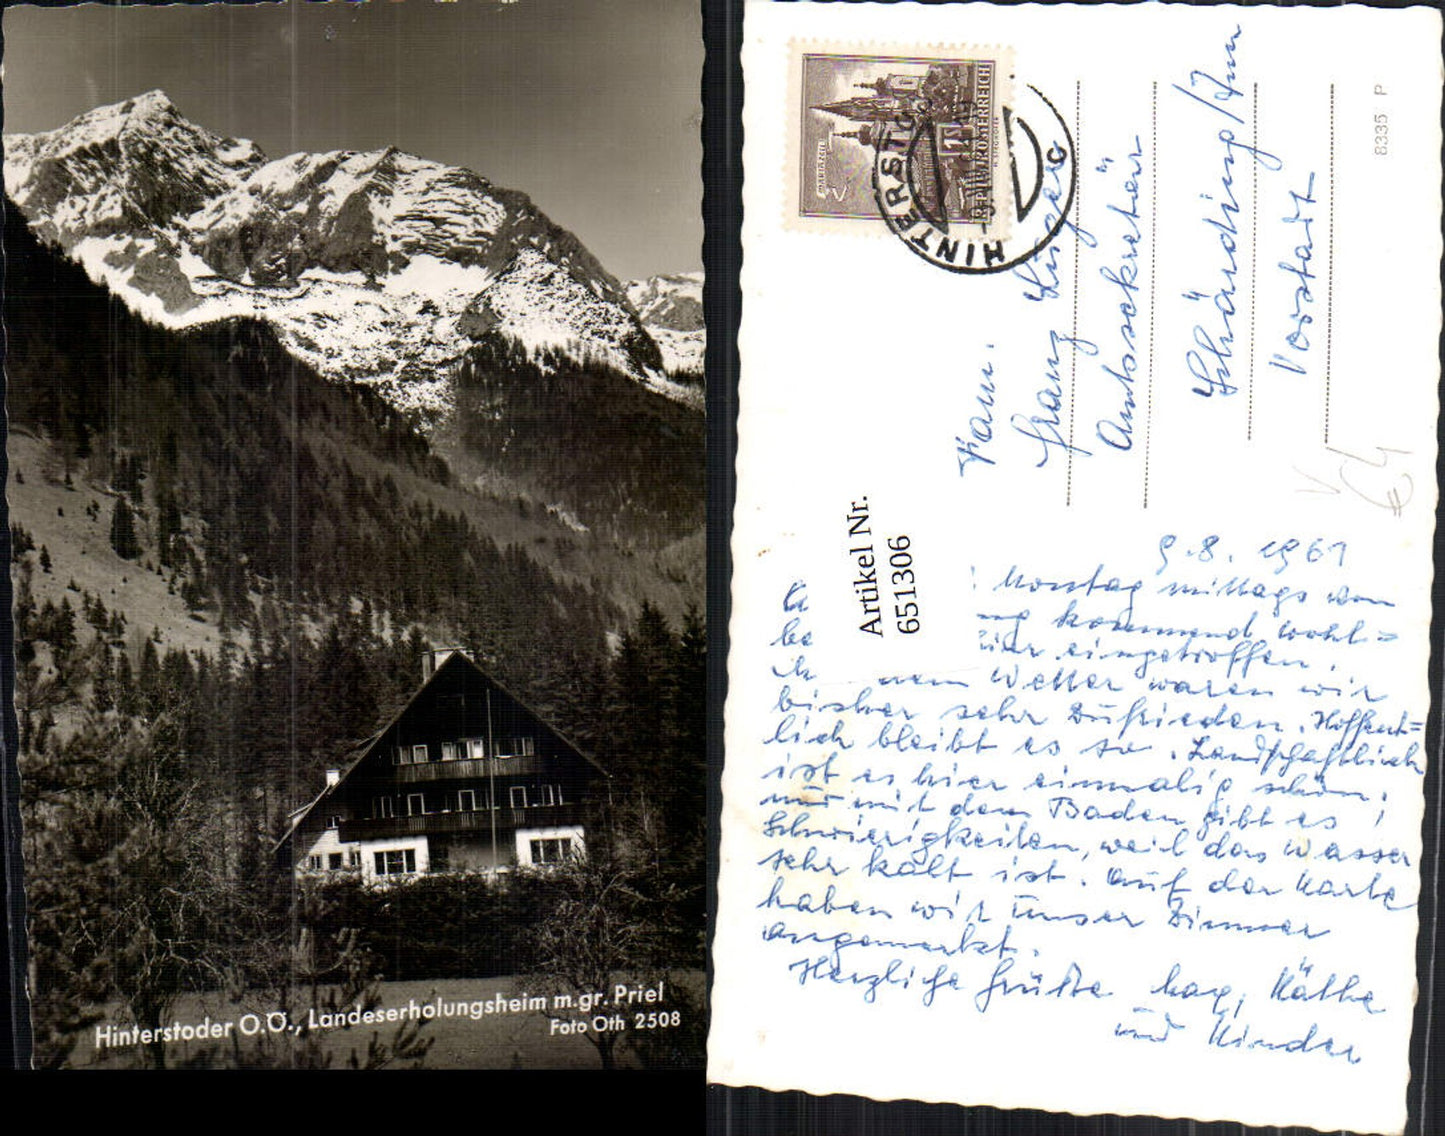 Hinterstoder O.Ö., Landeserholungsheim m.gr. Priel
Foto Oth 2508
MARIAZELL
REPUBLIK ÖSTERREICH
HINTERSTO
8335 P
Fam.
Franz
Amtssekretär
Schärding/Inn
Vorstadt
€4
Artikel Nr.
651306
9.8.1961
Montag mittags von
be kommend wohl=
eingetroffen.
Wetter waren wir
bisher sehr zufrieden. Hoffent=
lich bleibt es so. Landschaftlich
ist es hier einmalig schön,
nur mit dem Baden gibt es
Schwierigkeiten, weil das Wasser
sehr kalt ist. Auf der Karte
haben wir unser Zimmer
angemerkt.
Herzliche Grüße Käthe
und Kinder